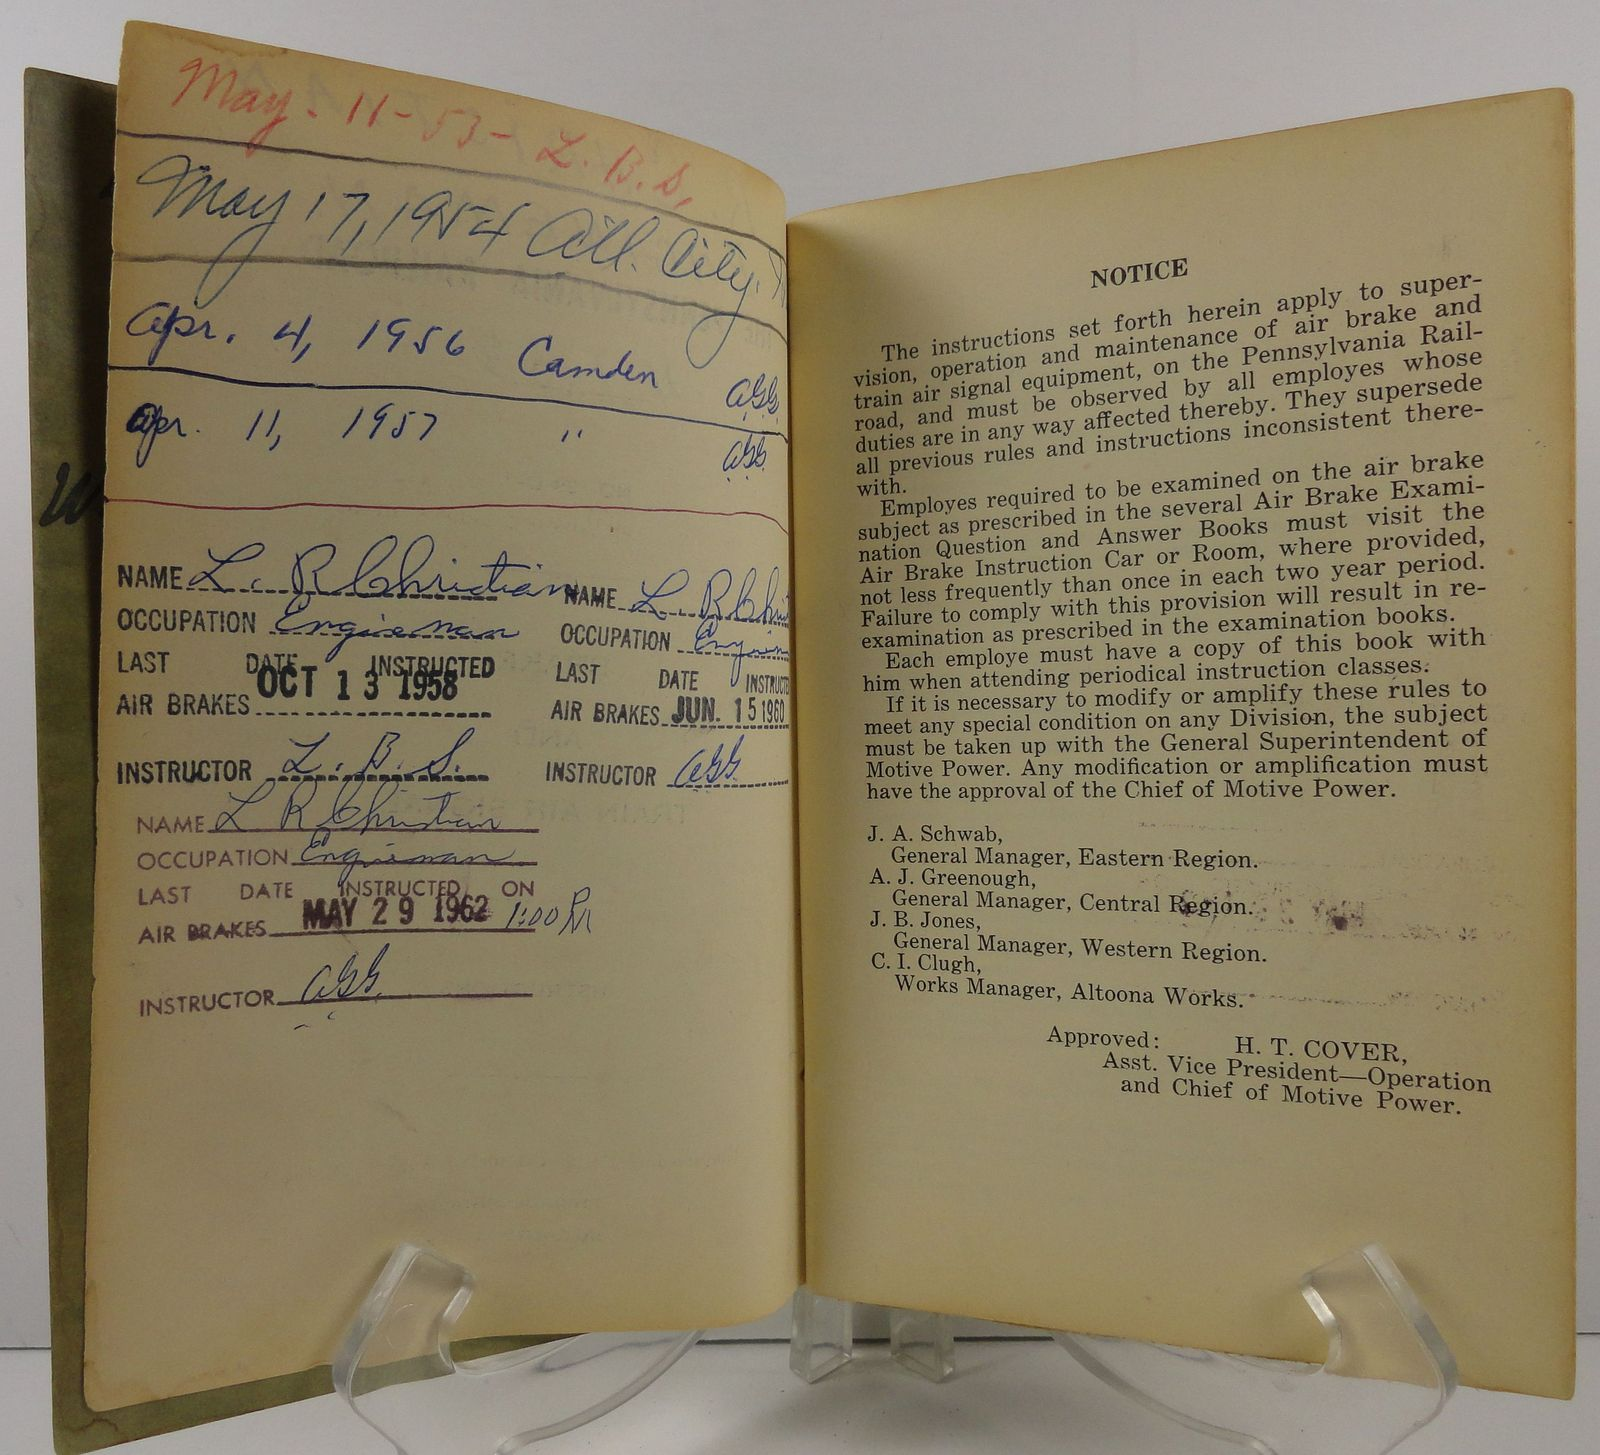 May. 11-53- L. B. S.
May 17, 1954 Atl. City.
Apr. 4, 1956 Camden AGG
Apr. 11, 1957 " AGG
NAME L. R Christian
OCCUPATION Engineman
LAST DATE INSTRUCTED
OCT 13 1958
AIR BRAKES
INSTRUCTOR L. B. S.
NAME L. R Chri
OCCUPATION Engin
LAST DATE INSTRUCTE
AIR BRAKES JUN. 15 1960
INSTRUCTOR AGG
NAME L R Christian
OCCUPATION Engineman
LAST DATE INSTRUCTED ON
AIR BRAKES MAY 29 1962 1:00 PM
INSTRUCTOR AGG
NOTICE
The instructions set forth herein apply to super-
vision, operation and maintenance of air brake and
train air signal equipment, on the Pennsylvania Rail-
road, and must be observed by all employes whose
duties are in any way affected thereby. They supersede
all previous rules and instructions inconsistent there-
with.
Employes required to be examined on the air brake
subject as prescribed in the several Air Brake Exami-
nation Question and Answer Books must visit the
Air Brake Instruction Car or Room, where provided,
not less frequently than once in each two year period.
Failure to comply with this provision will result in re-
examination as prescribed in the examination books.
Each employe must have a copy of this book with
him when attending periodical instruction classes.
If it is necessary to modify or amplify these rules to
meet any special condition on any Division, the subject
must be taken up with the General Superintendent of
Motive Power. Any modification or amplification must
have the approval of the Chief of Motive Power.
J. A. Schwab,
General Manager, Eastern Region.
A. J. Greenough,
General Manager, Central Region.
J. B. Jones,
General Manager, Western Region.
C. I. Clugh,
Works Manager, Altoona Works.
Approved: H. T. COVER,
Asst. Vice President—Operation
and Chief of Motive Power.